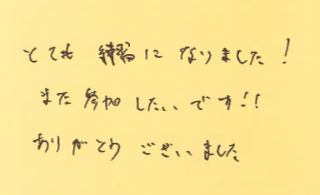 とても 練習に なりました！
また 参加 したいです!!
ありがとう ございました